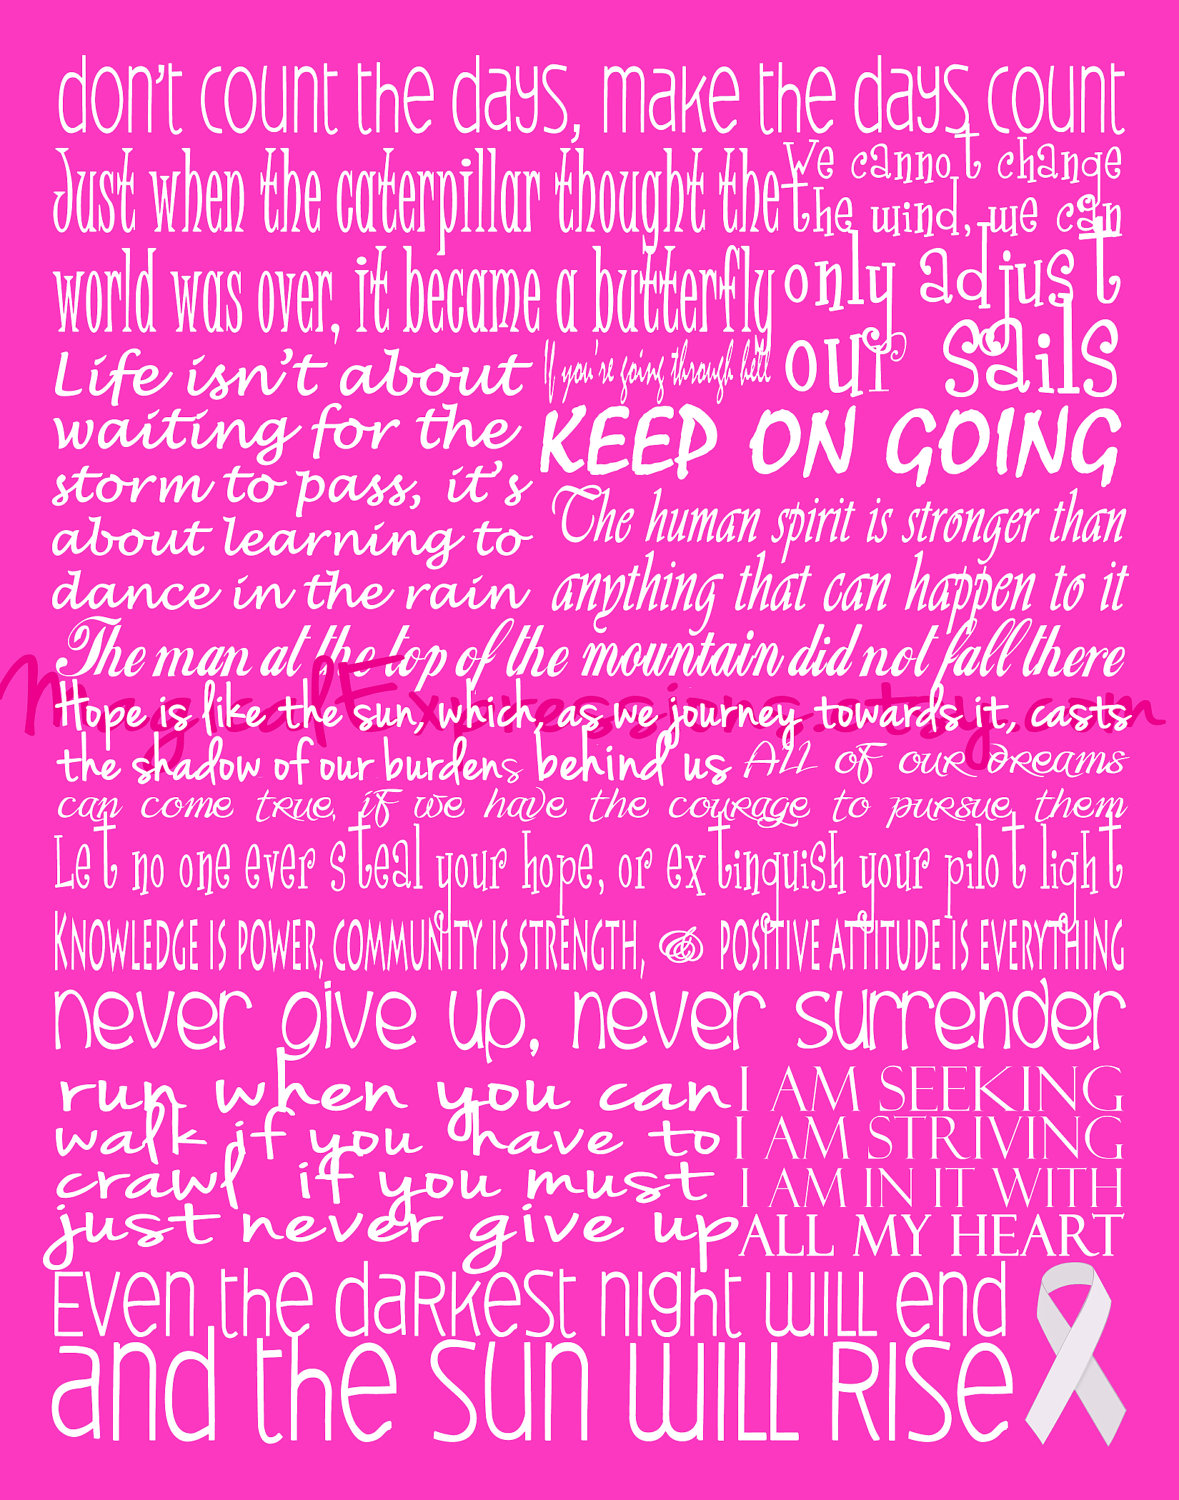 don't count the days, make the days count
Just when the caterpillar thought the
world was over, it became a butterfly
We cannot change
the wind, we can
only adjust
our sails
Life isn't about
waiting for the
storm to pass, it's
about learning to
dance in the rain
If you're going through hell
KEEP ON GOING
The human spirit is stronger than
anything that can happen to it
The man at the top of the mountain did not fall there
MagicalExpressions.etsy.com
Hope is like the sun, which, as we journey towards it, casts
the shadow of our burdens behind us
All of our dreams
can come true, if we have the courage to pursue them
Let no one ever steal your hope, or extinquish your pilot light
Knowledge is power, community is strength, & positive attitude is everything
never give up, never surrender
run when you can
walk if you have to
crawl if you must
just never give up
I AM SEEKING
I AM STRIVING
I AM IN IT WITH
ALL MY HEART
Even the darkest night will end
and the sun will rise